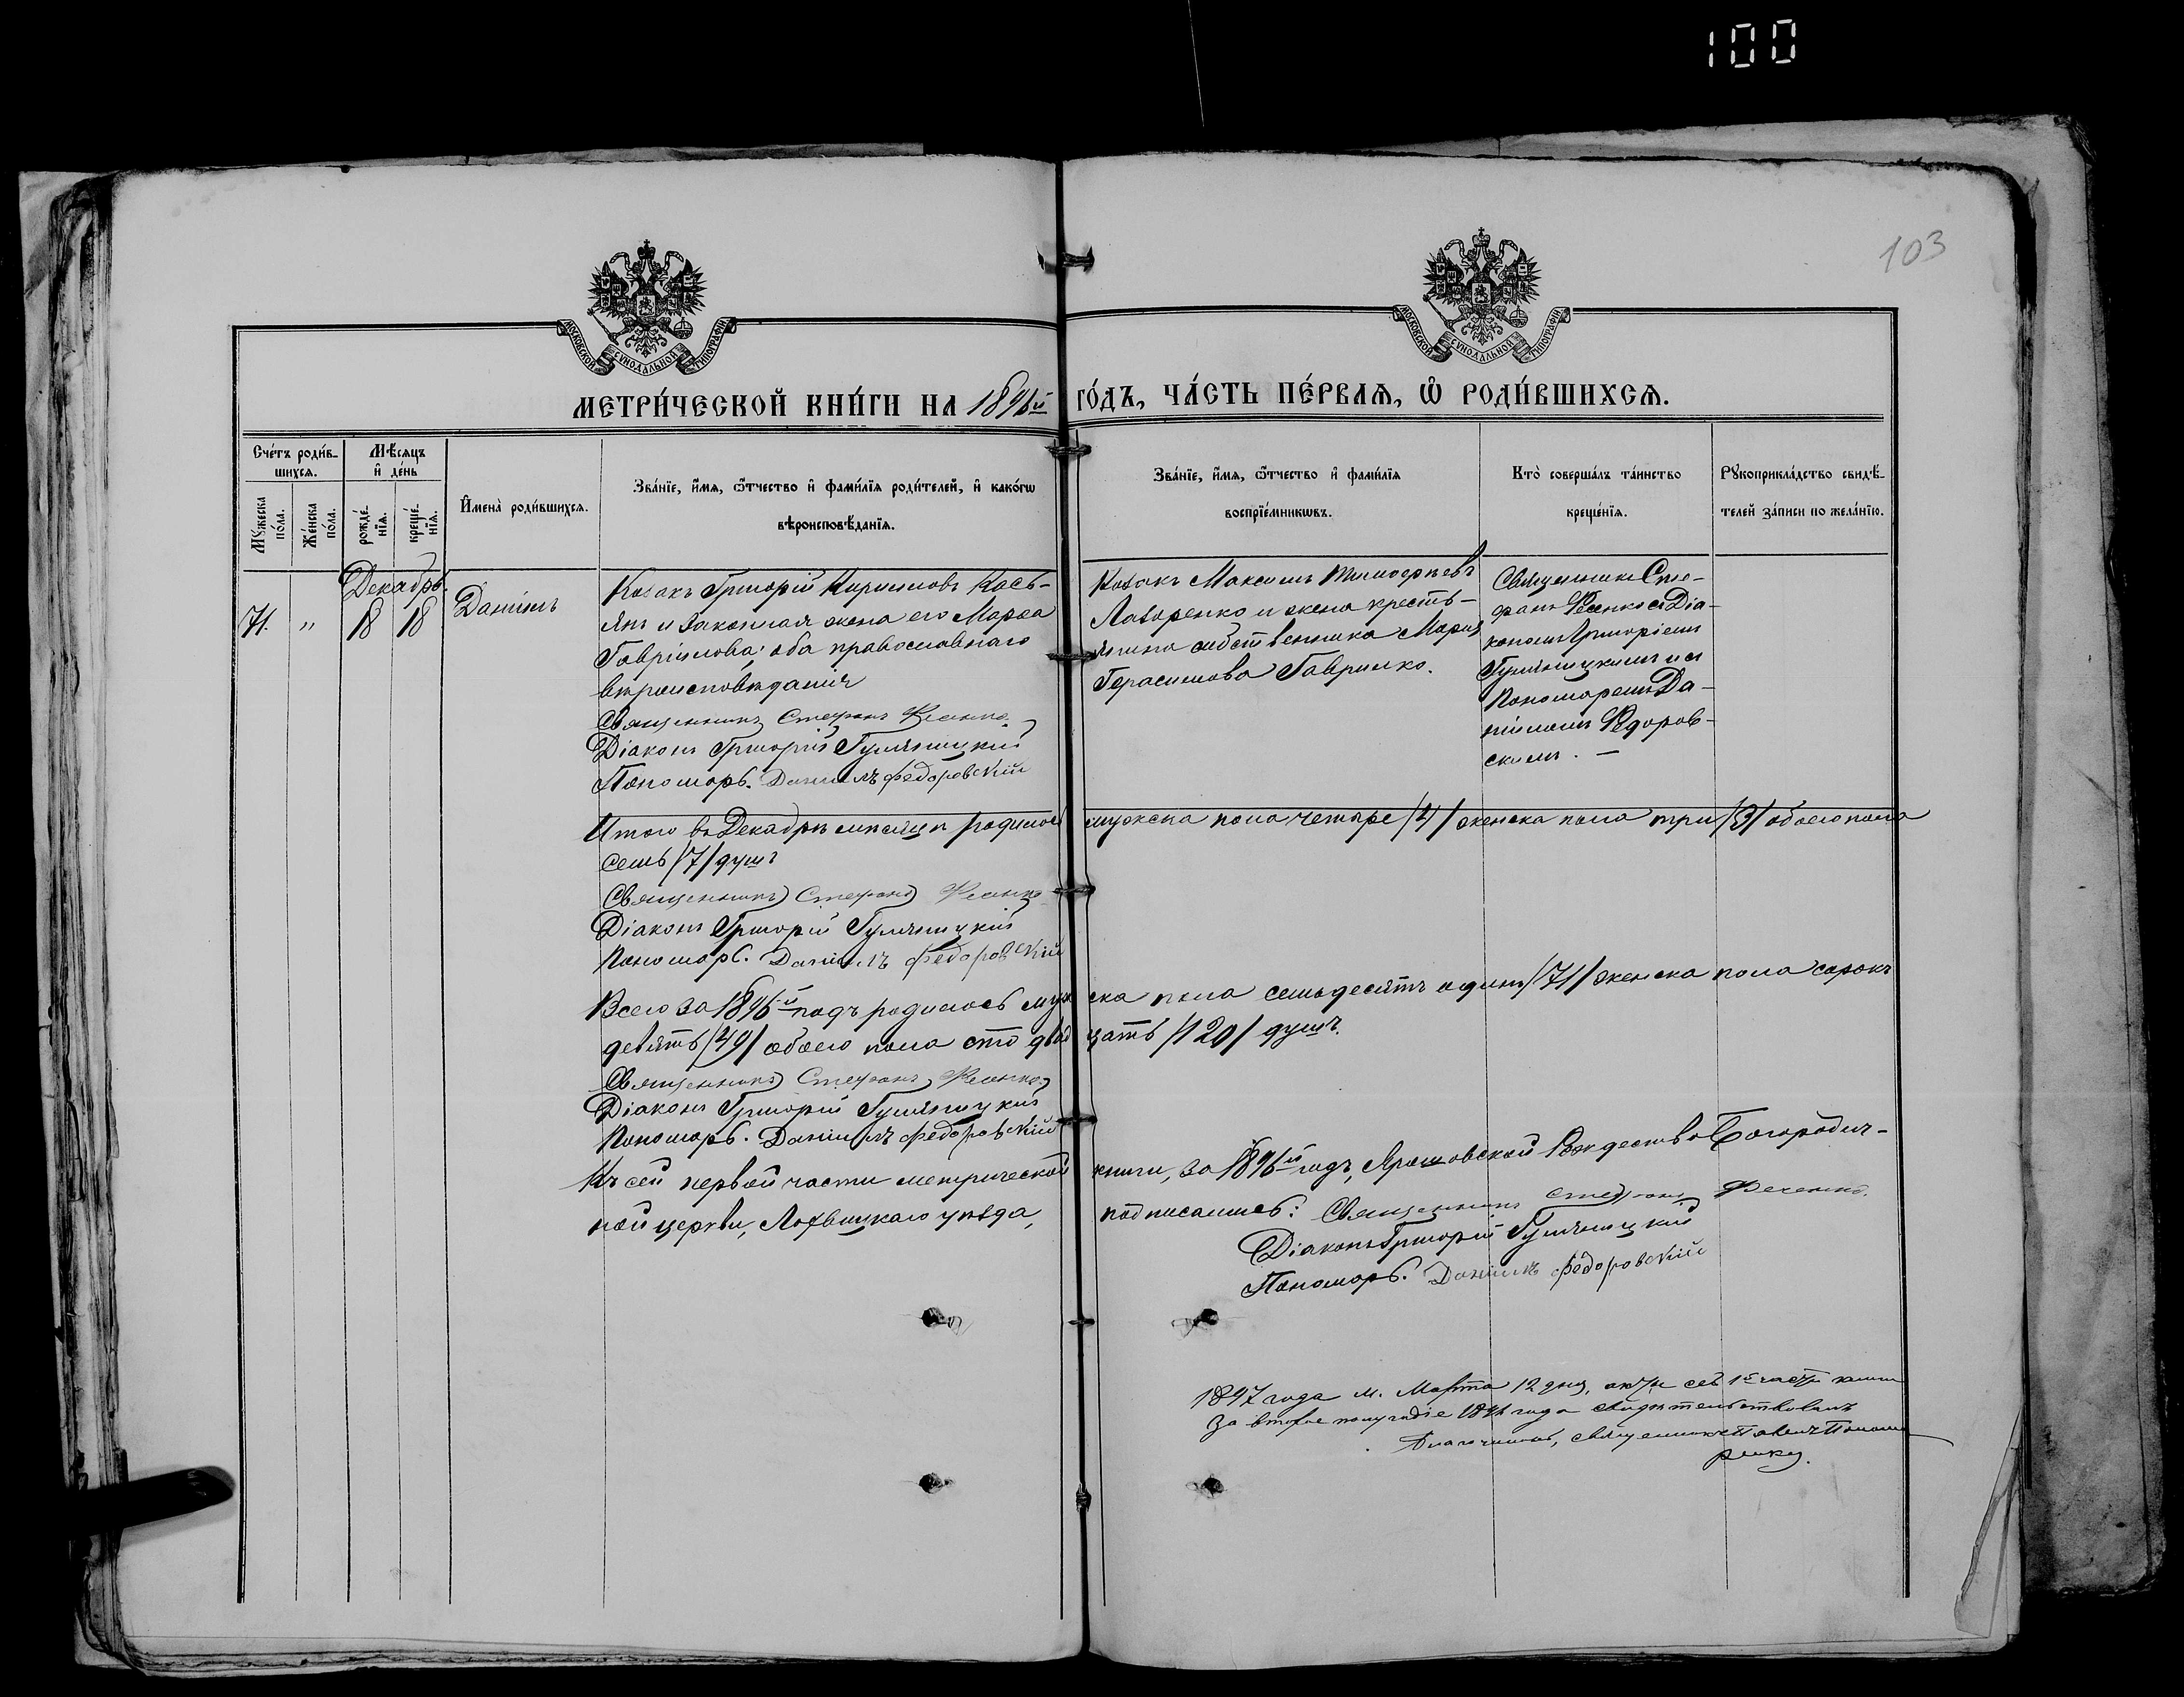 100
103
МОСКОВСКОЙ СѴНОДАЛЬНОЙ ТИПОГРАФІИ
МОСКОВСКОЙ СѴНОДАЛЬНОЙ ТИПОГРАФІИ
МЕТРИ́ЧЕСКОЙ КНИ́ГИ НА 1896й ГО́ДЪ, ЧА́СТЬ ПЕ́РВАЯ, Ѡ҆ РОДИ́ВШИХСЯ.
Сче́тъ роди́в-
шихся.
Мѣ́сяцъ
и҆ де́нь
Му́жеска по́ла.
Же́нска по́ла.
рожде́нїя.
креще́нїя.
И҆мена̀ роди́вшихся.
Зва́нїе, и҆́мя, ѻ҆́тчество и҆ фами́лїя роди́телей, и҆ како́гѡ
вѣроисповѣ́данїя.
Зва́нїе, и҆́мя, ѻ҆́тчество и҆ фами́лїя
воспрїе́мникѡвъ.
Кто̀ соверша́лъ та́инство
креще́нїя.
Рꙋкоприкла́дство свидѣ́-
телей за́писи по жела́нїю.
Декабрь.
71. " 18 18 Даніилъ
Козакъ Григорій Кирилловъ Кась-
янъ и законная жена его Марѳа
Гавріилова; оба православнаго
вѣроисповѣданія
Священникъ Стефанъ Фесенко
Діаконъ Григорій Гумяницкій
Пономарь. Даніилъ Федоровскій
Козакъ Максимъ Тимофеевъ
Лазоренко и жена кресть-
янина собственника Марія
Герасимова Гаврилко.
Священникъ Сте-
фанъ Фесенко съ Діа-
кономъ Григоріемъ
Гумяницкимъ и съ
Пономаремъ Да-
ніиломъ Федоров-
скимъ. —
Итого въ Декабрѣ мѣсяцѣ родилось мужска пола четыре /4/ женска пола три /3/ обоего пола
семь /7/ душъ
Священникъ Стефанъ Фесенко
Діаконъ Григорій Гумяницкій
Пономарь. Даніилъ Федоровскій
Всего за 1896й годъ родилось мужска пола семьдесятъ одинъ /71/ женска пола сорокъ
девять /49/ обоего пола сто двадцать /120/ душъ.
Священникъ Стефанъ Фесенко
Діаконъ Григорій Гумяницкій
Пономарь. Даніилъ Федоровскій
Къ сей первой части метрической книги, за 1896й годъ, Ярошовской Рождество Богородич-
ной церкви, Лохвицкаго уѣзда, подписались: Священникъ Стефанъ Фесенко.
Діаконъ Григорій Гумяницкій
Пономарь. Даніилъ Федоровскій
1897 года м. Марта 12 дня, сей 1й части книги
За второе полугодіе 1896 года свидѣтельствовалъ
Благочинный, священникъ Павелъ